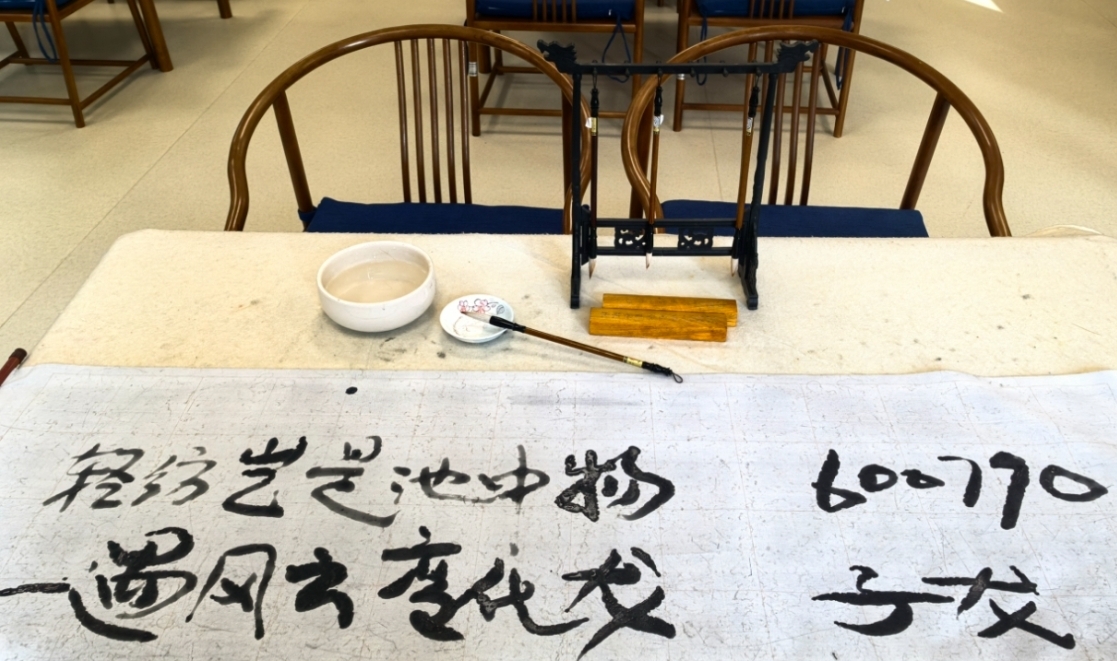 轻纺岂是池中物 600790
一遇风云变化龙 子龙